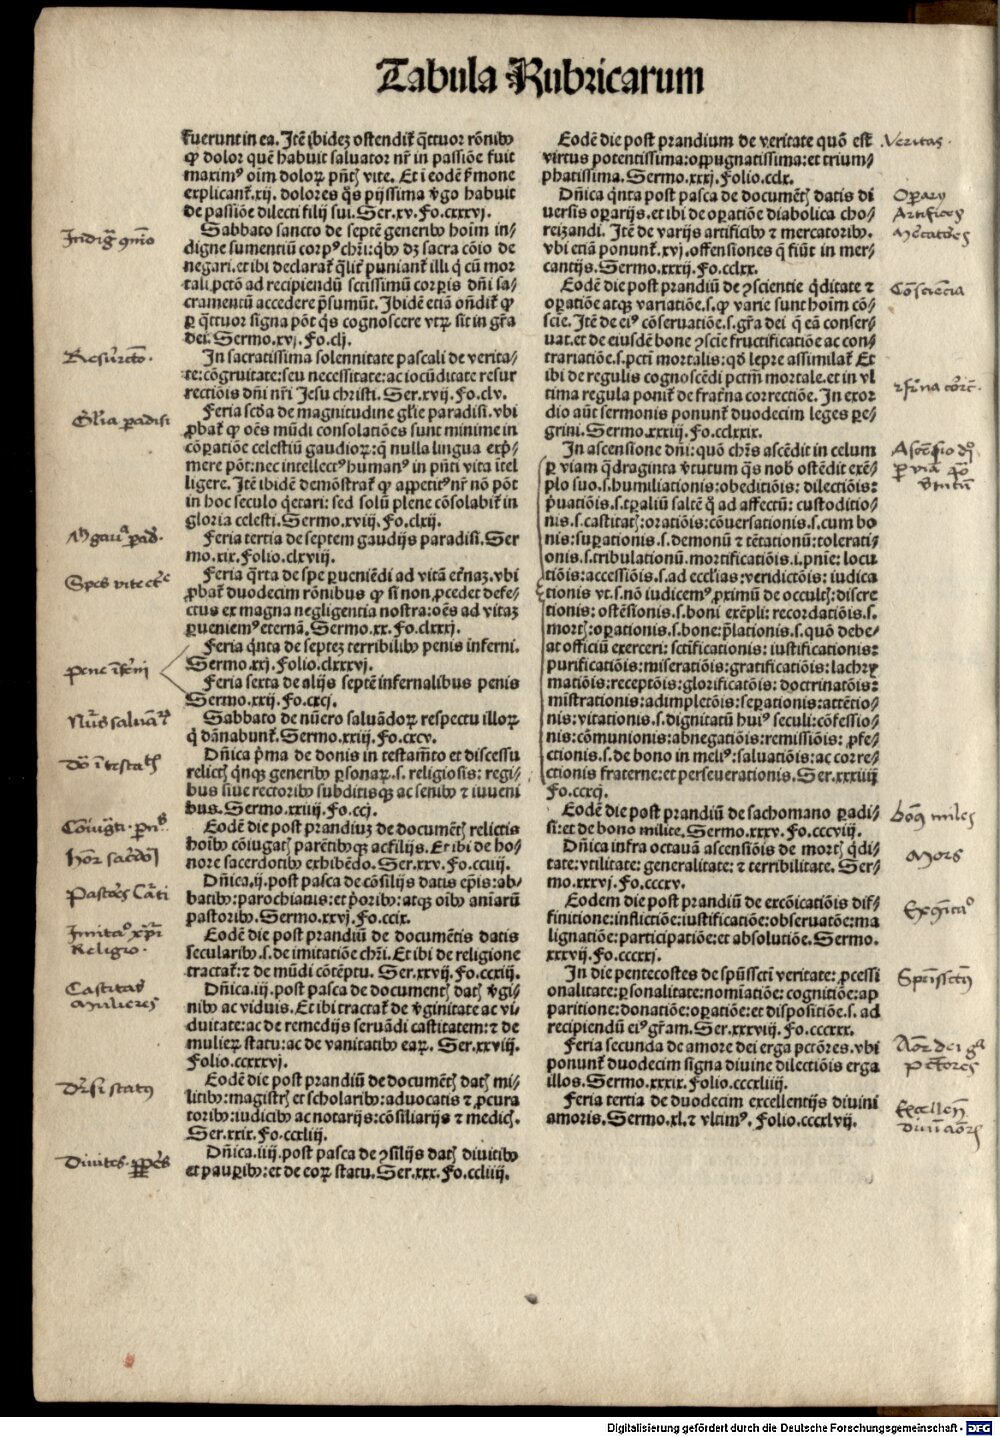 Tabula Rubricarum
fuerunt in ea. Itē ibidez ostendit̄ qͣttuor rōnibꝰ
ꝙ dolor quē habuit saluator nr̄ in passiōe fuit
maximꝰ oīm doloꝝ pn̄tꝭ vite. Et i eodē ẜmone
explicant̄. xij. dolores qͦs pijssima v̄go habuit
de passiōe dilecti filij sui. Ser. xv. Fo. cxxxvj.
Sabbato sancto de septē generibꝰ hoīm in⸗
digne sumentiū corpꝰ chr̄i: qͥbꝰ dꝫ sacra cōio de
negari. et ibi declarat̄ qͣlit̄ puniant̄ illi qͥ cū mor
tali pctō ad recipiendū sctissimū corꝑis dn̄i sa⸗
cramentū accedere p̄sumūt. Ibidē etiā on̄dit̄ ꝙ
ꝑ qͣttuor signa pōt qͥs cognoscere vtꝝ sit in gr̄a
dei. Sermo. xvj. Fo. clj.
In sacratissima solennitate pascali de verita⸗
te: cōgruitate: seu necessitate: ac iocūditate resur
rectiōis dn̄i nr̄i Jesu christi. Ser. xvij. Fo. clv.
Feria scd̄a de magnitudine gl̄ie paradisi. vbi
ꝓbat̄ ꝙ oēs mūdi consolatiōes sunt minime in
cōꝑatiōe celestiū gaudioꝝ: qͣ nulla lingua exp̄⸗
mere pōt: nec intellectꝰ humanꝰ in pn̄ti vita ītel
ligere. Itē ibidē demōstrat̄ ꝙ appetitꝰ nr̄ nō pōt
in hoc seculo qͥetari: sed solū plene cōsolabit̄ in
gloria celesti. Sermo. xviij. Fo. clxij.
Feria tertia de septem gaudijs paradisi. Ser
mo. xix. Folio. clxviij.
Feria qͣrta de spe ꝑueniēdi ad vitā et̄naꝫ. vbi
ꝓbat̄ duodecim rōnibus ꝙ si non ꝓcedet defe⸗
ctus ex magna negligentia nostra: oēs ad vitaꝫ
ꝑueniemꝰ eternā. Sermo. xx. Fo. clxxxj.
Feria qͥnta de septeꝫ terribilibꝰ penis inferni.
Sermo. xxj. Folio. clxxxvj.
Feria sexta de alijs septē infernalibus penis
Sermo. xxij. Fo. cxcj.
Sabbato de nūero saluādoꝝ respectu illoꝝ
qͥ dānabunt̄. Sermo. xxiij. Fo. cxcv.
Dn̄ica pͥma de donis in testam̄to et discessu
relictꝭ qͥnqꝫ generibꝰ ꝑsonaꝝ. s. religiosis: regi⸗
bus siue rectoribꝰ subditisqꝫ ac senibꝰ et iuueni
bus. Sermo. xxiiij. Fo. ccj.
Eodē die post prandiuꝫ de documētꝭ relictis
hoībꝰ cōiugatꝭ parētibꝰqꝫ ac filijs. Et ibi de ho⸗
nore sacerdotibꝰ exhibēdo. Ser. xxv. Fo. ccvij.
Dn̄ica. ij. post pasca de cōsilijs datis ep̄is: ab⸗
batibꝰ: parochianis: et pͥoribꝰ: atqꝫ oībꝰ aīarū
pastoribꝰ. Sermo. xxvj. Fo. ccix.
Eodē die post prandiū de documētis datis
secularibꝰ. s. de imitatiōe chr̄i. Et ibi de religione
tractat̄: ⁊ de mūdi cōtēptu. Ser. xxvij. Fo. ccxiij.
Dn̄ica. iij. post pasca de documentꝭ datꝭ v̄gi⸗
nibꝰ ac viduis. Et ibi tractat̄ de v̄ginitate ac vi⸗
duitate: ac de remedijs seruādi castitatem: ⁊ de
mulieꝝ statu: ac de vanitatibꝰ eaꝝ. Ser. xxviij.
Folio. ccxxxvj.
Eodē die post prandiū de documētꝭ datꝭ mi⸗
litibꝰ: magistrꝭ et scholaribꝰ: aduocatis ⁊ ꝓcura
toribꝰ: iudicibꝰ ac notarijs: cōsiliarijs ⁊ medicꝭ.
Ser. xxix. Fo. ccxliij.
Dn̄ica. iiij. post pasca de ꝯsilijs datꝭ diuitibꝰ
et pauꝑibꝰ: et de eoꝝ statu. Ser. xxx. Fo. ccliiij.
Eodē die post prandium de veritate quō est
virtus potentissima: oppugnatissima: et trium⸗
phatissima. Sermo. xxxj. Folio. cclx.
Dn̄ica qͥnta post pasca de documētꝭ datis di
uersis oꝑarijs. et ibi de oꝑatiōe diabolica cho⸗
reizandi. Itē de varijs artificibꝰ ⁊ mercatoribꝰ.
vbi etiā ponunt̄. xvj. offensiones q̄ fiūt in mer⸗
cantijs. Sermo. xxxij. Fo. cclxx.
Eodē die post prandiū de ꝯscientie qͥditate ⁊
oꝑatiōe atqꝫ variatiōe. s. ꝙ varie sunt hoīm cō⸗
scie. Itē de eiꝰ cōseruatiōe. s. gr̄a dei q̄ eā conser⸗
uat. et de eiusdē bone ꝯscie fructificatiōe ac con⸗
trariatiōe. s. pcti mortalis: qd̄ lepre assimilat̄ Et
ibi de regulis cognoscēdi pctm̄ mortale. et in vl
tima regula ponit̄ de frat̄na correctiōe. In exor
dio aūt sermonis ponunt̄ duodecim leges ꝑe⸗
grini. Sermo. xxxiij. Fo. cclxxix.
In ascensione dn̄i: quō chr̄s ascēdit in celum
ꝑ viam qͣdraginta v̄tutum q̄s nob̄ ostēdit exē⸗
plo suo. s. humiliationis: obeditiōis: dilectiōis:
pͥuatiōis. s. tꝑaliū saltē qͦ ad affectū: custoditio⸗
nis. s. castitatꝭ: oratiōis: cōuersationis. s. cum bo
nis: suꝑationis. s. demonū ⁊ tētationū: tolerati⸗
onis. s. tribulationū. mortificatiōis. i. pnīe: locu
tiōis: accessiōis. s. ad eccl̄ias: veridictōis: iudica
tionis vt. s. nō iudicemꝰ ꝓximū de occultꝭ: discre
tionis: ostēsionis. s. boni exēpli: recordatiōis. s.
mortꝭ: oꝑationis. s. bone: p̄lationis. s. quō debe⸗
at officiū exerceri: sctificationis: iustificationis:
purificatiōis: miseratiōis: gratificatiōis: lachry
matiōis: receptōis: glorificatōis: doctrinatōis:
mistrationis: adimpletōis: seꝑationis: attētio⸗
nis: vitationis. s. dignitatū huiꝰ seculi: cōfessio⸗
nis: cōmunionis: abnegatiōis: remissiōis: ꝓfe⸗
ctionis. s. de bono in meliꝰ: saluatiōis: ac corre⸗
ctionis fraterne: et perseuerationis. Ser. xxxiiij
Fo. ccxcj.
Eodē die post prandiū de sachomano ꝑadi⸗
si: et de bono milite. Sermo. xxxv. Fo. cccviij.
Dn̄ica infra octauā ascensiōis de mortꝭ qͥdi⸗
tate: vtilitate: generalitate: ⁊ terribilitate. Ser⸗
mo. xxxvj. Fo. cccxv.
Eodem die post prandiū de excōicatiōis dif⸗
finitione: inflictiōe: iustificatiōe: obseruatōe: ma
lignatiōe: participatiōe: et absolutiōe. Sermo.
xxxvij. Fo. cccxxj.
In die pentecostes de spūsscti veritate: ꝓcessi
onalitate: ꝑsonalitate: nomīatiōe: cognitiōe: ap
paritione: donatiōe: oꝑatiōe: et dispositiōe. s. ad
recipiendū eiꝰ gr̄am. Ser. xxxviij. Fo. cccxxx.
Feria secunda de amore dei erga pctōres. vbi
ponunt̄ duodecim signa diuine dilectiōis erga
illos. Sermo. xxxix. Folio. cccxliiij.
Feria tertia de duodecim excellentijs diuini
amoris. Sermo. xl. ⁊ vltimꝰ. Folio. cccxlvij.
Gl̄ia paradisi
Castitas
mulieres
Veritas.
Artifices
Mors
Digitalisierung gefördert durch die Deutsche Forschungsgemeinschaft - DFG